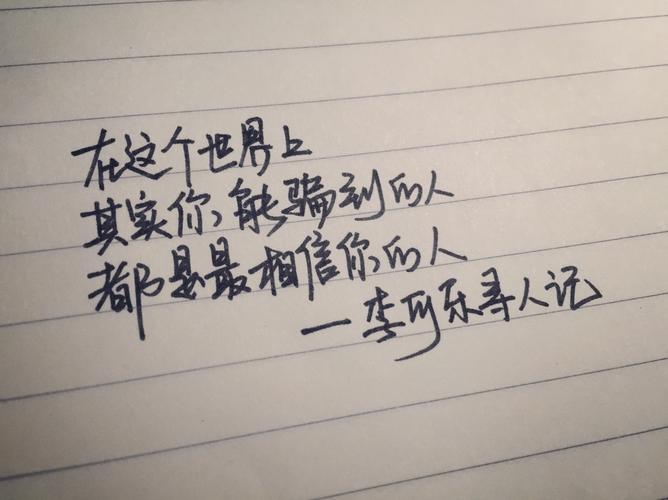 在这个世界上
其实你能骗到的人
都是最相信你的人
—李可乐寻人记